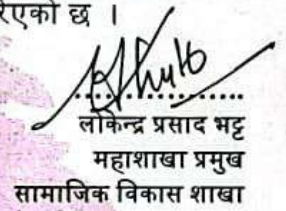 रिएको छ ।
लोकेन्द्र प्रसाद भट्ट
महाशाखा प्रमुख
सामाजिक विकास शाखा